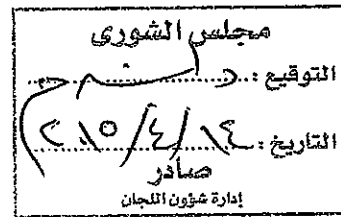 مجلس الشورى
التوقيع :
التاريخ : ١٤/٤/٢٠١٥
صادر
إدارة شؤون اللجان